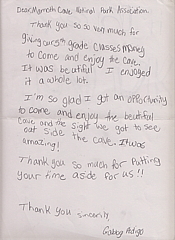 Dear Mammoth Cave National Park Association.
Thank you so so very much for
giving our 5th grade classes money
to come and enjoy the cave.
It was beutiful I enjoyed
it a whole lot.
I'm so glad I got an opportunity
to come and enjoy the beutiful
cave and the sight we got to see
out side the cave. It was
amazing!
Thank you so much for Putting
your time aside for us!!
Thank you sincerly